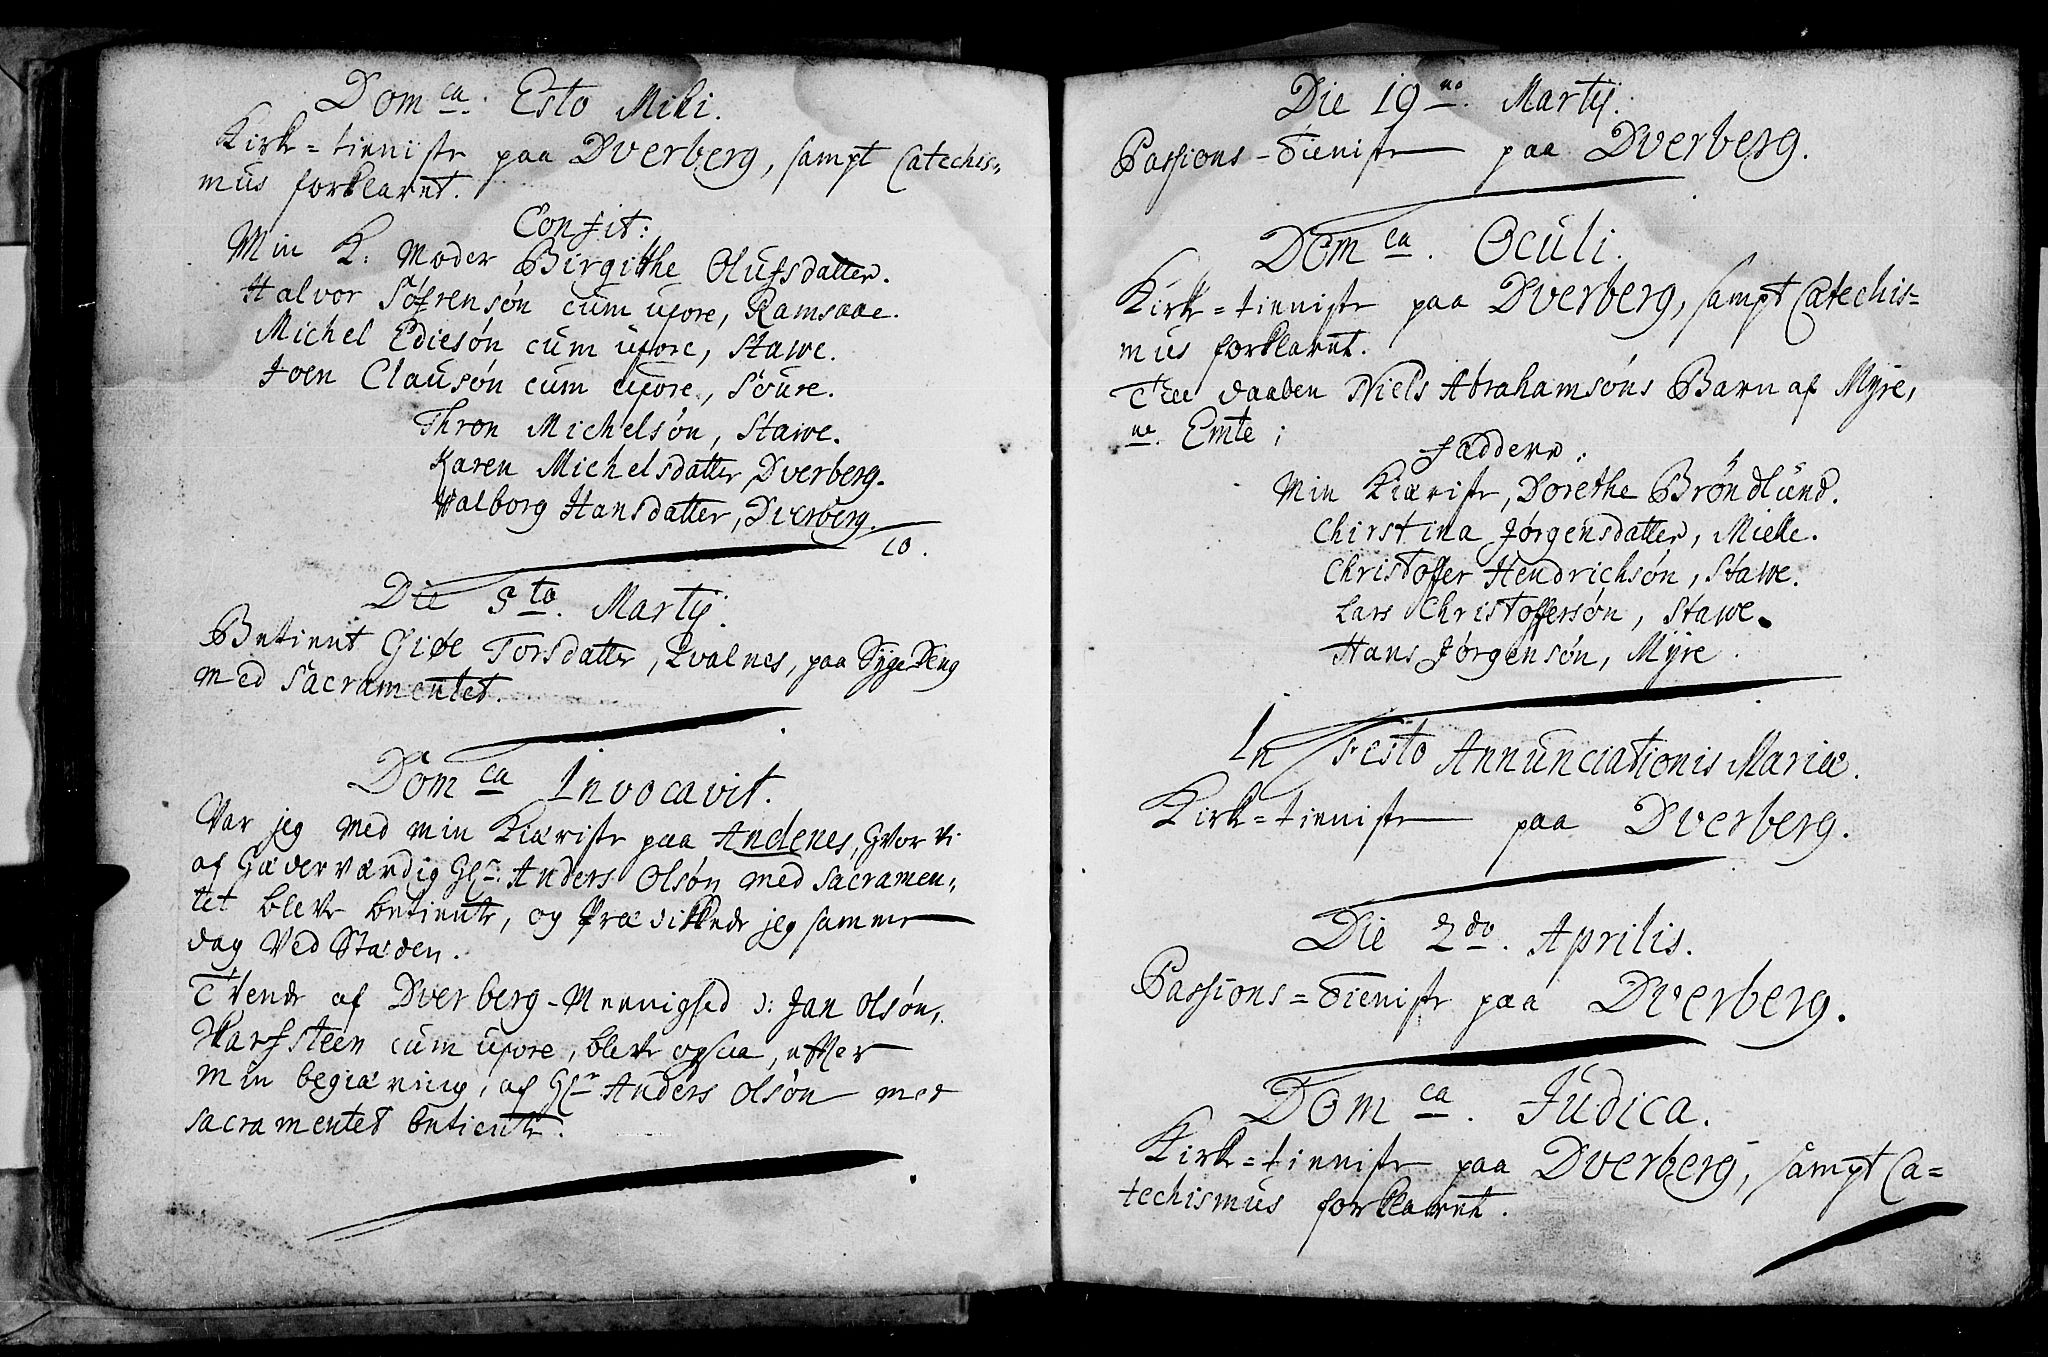 Dom ca. Esto Mihi.
Kirke=tieniste paa Dverberg, sampt Catechis=
mus forklaret.
Confit:
Min K: Moder Birgithe Olufsdatter.
Halvor Söfrensøn cum uxore, Ramsaae.
Michel Ediesøn cum uxore, Stawe.
Joen Clausøn cum uxore, Söure.
Thron Michelsøn, Stawe.
Karen Michelsdatter, Dverberg.
Walborg Hansdatter, Dverberg.
10.
Die 5 to. Martij.
Betient Giøe Torsdatter, Qvalnes, paa Syge Seng
med Sacramentet.
Domca Invocavit.
Var jeg med min Kiæriste paa Andenes, hvor vi
af Hæderværdig Hr: Anders Olsøn med Sacramen=
tet bleve betiente, og Prædikkede jeg samme
dag ved Stæden.
Tvende af Dverberg-Meenighed ɔ: Jan Olsøn,
Harfsteen cum uxore, bleve ogsaa, efter
min begiæring, af Hr Anders Olsøn med
Sacramentet betiente.
Die 19 no. Martij.
Passions-Tieniste paa Dverberg.
Dom ca. Oculi.
Kirke=tieniste paa Dverberg, sampt Catechis=
mus forklaret.
Til daaben Niels Abrahamsøns Barn af Myre,
ne. Emte;
Faddere:
Min Kiæriste, Dorethe Bröndlund.
Chirstina Jørgensdatter, Mielle.
Christoffer Hendrichsøn, Stawe.
Lars Christoffersøn, Stawe.
Hans Jørgensøn, Myre.
In Festo Annunciationis Mariæ.
Kirke=tieniste paa Dverberg.
Die 2do. Aprilis.
Passions=Tieniste paa Dverberg.
Dom ca. Judica.
Kirke=tieniste paa Dverberg, sampt Ca=
techismus forklaret.